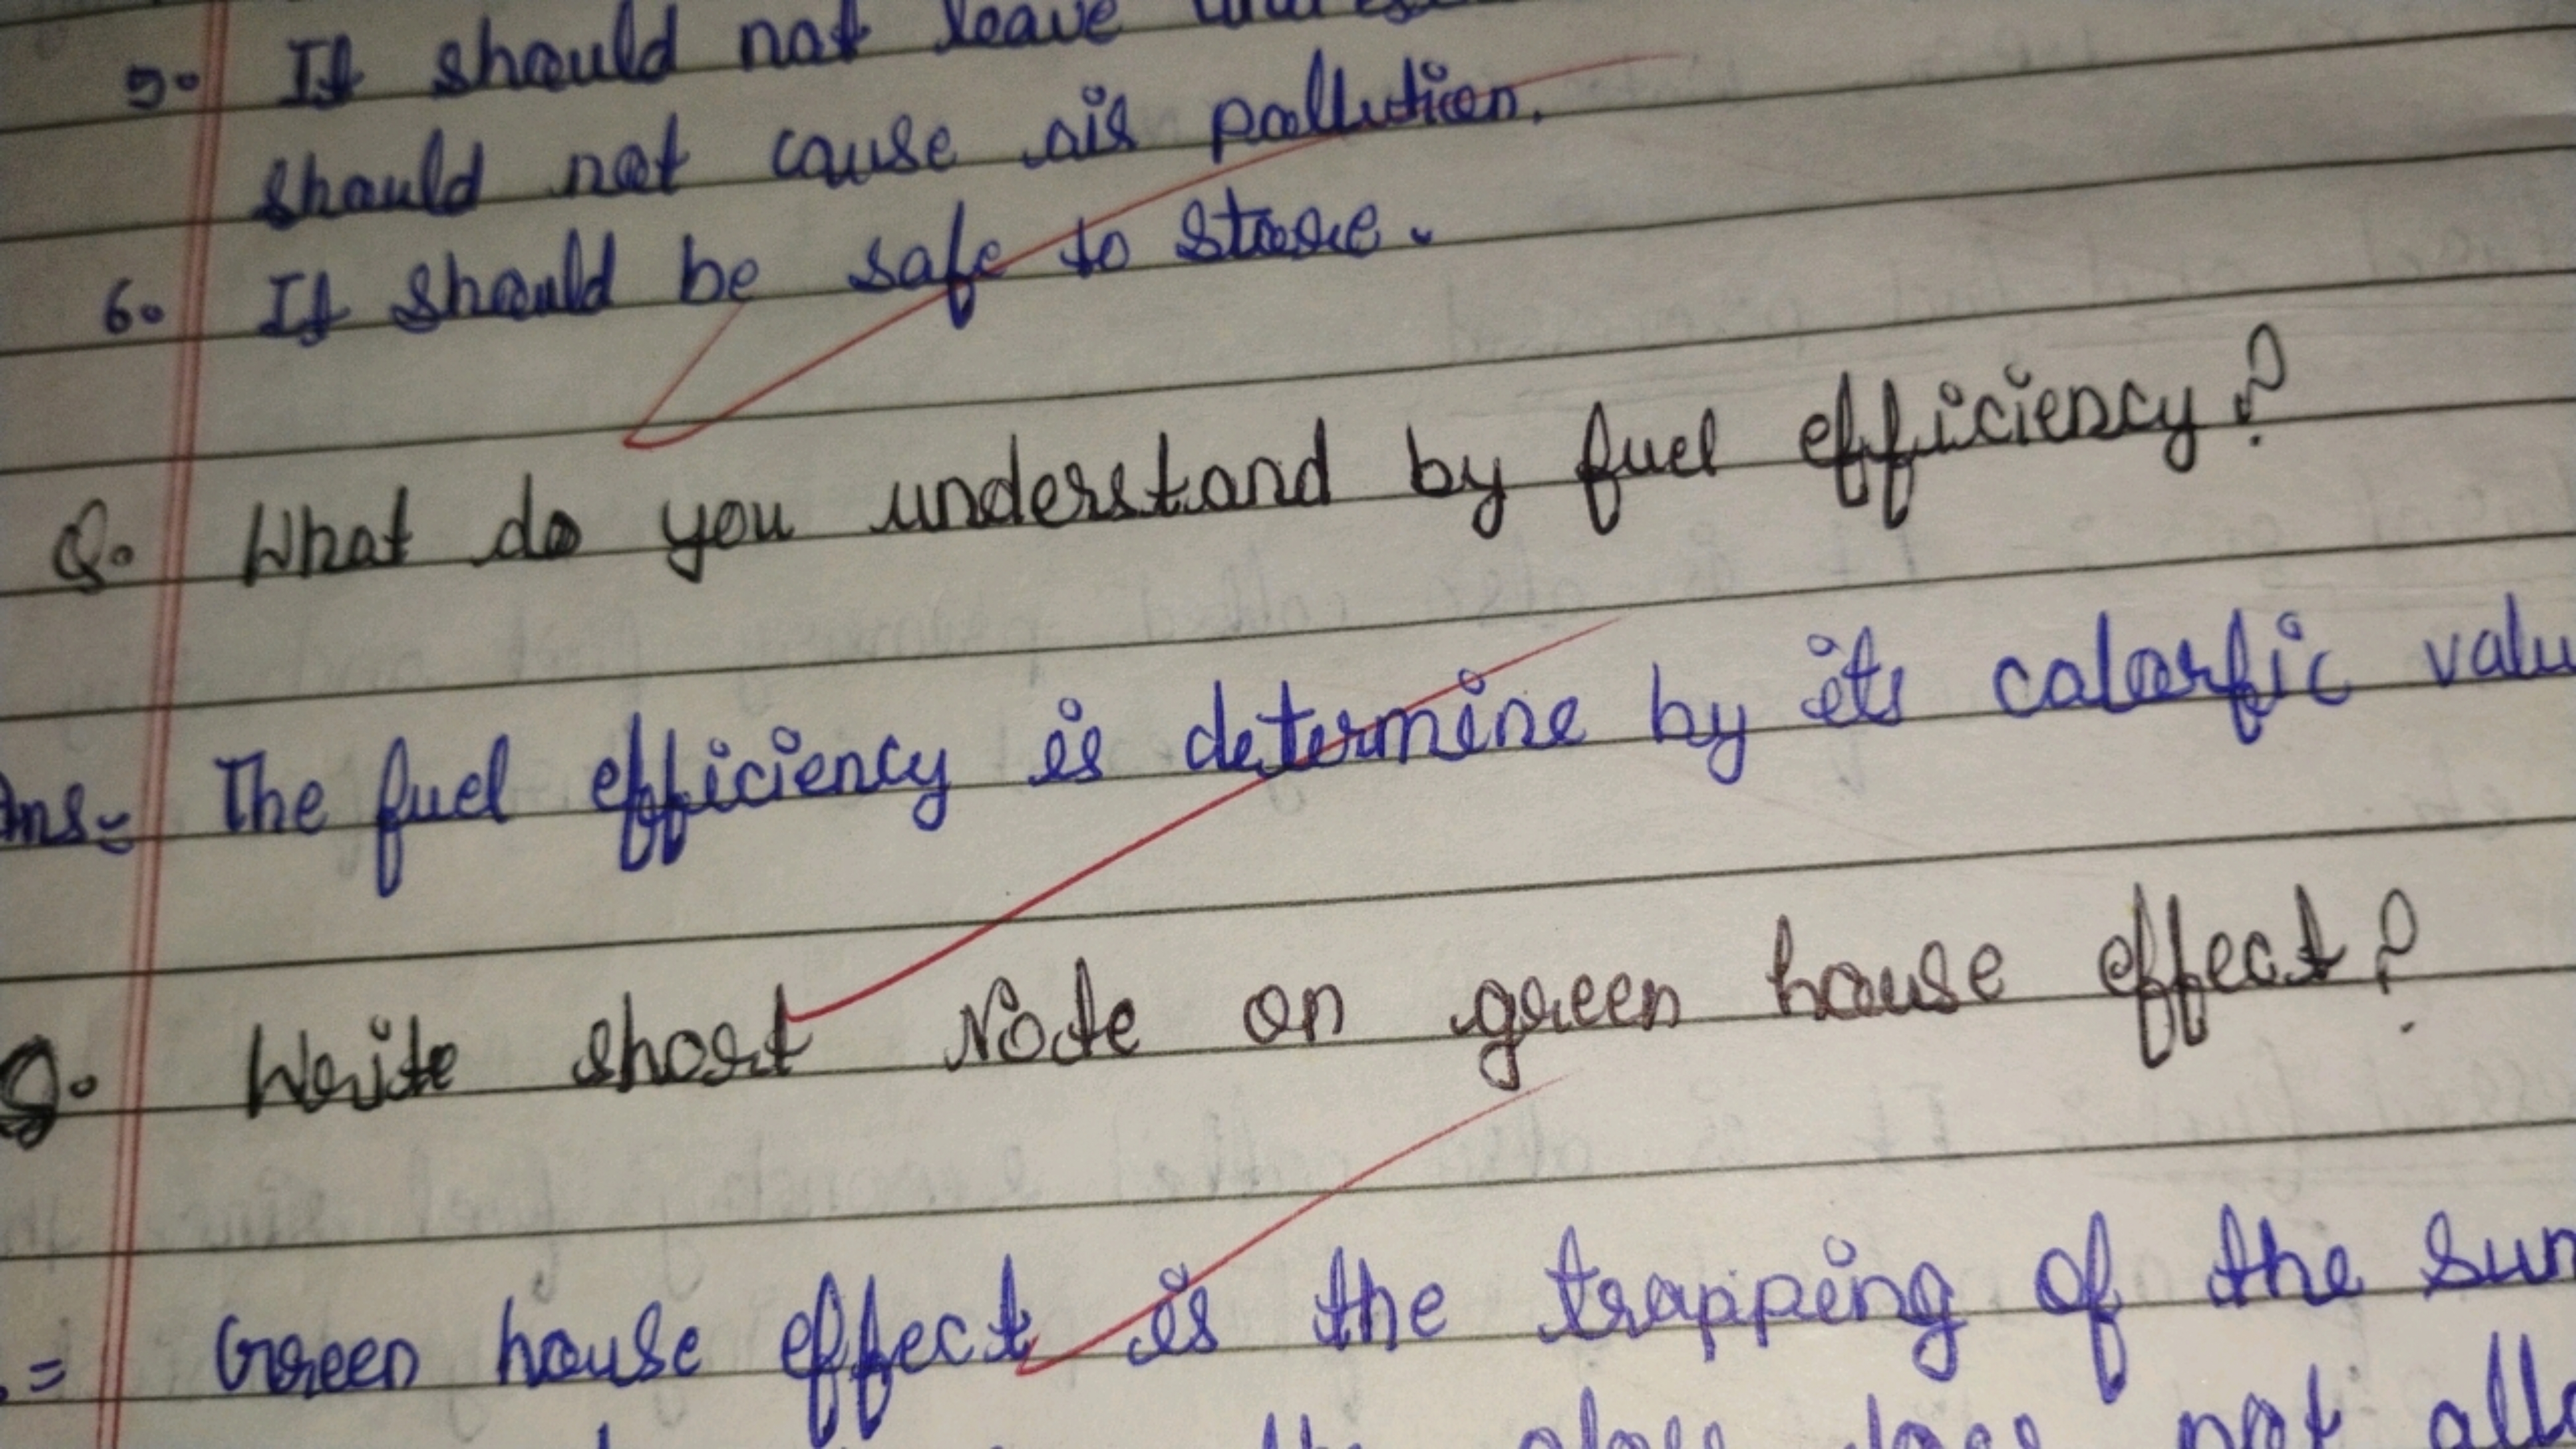 5. It should not leave
should not cause air pollution.
6. It should be safe to store.
Q. What do you understand by fuel efficiency?
Ans= The fuel efficiency is determine by its calorfic valu
Q. Write short Note on green house effect?
= Green house effect is the trapping of the sun
the glass does not all